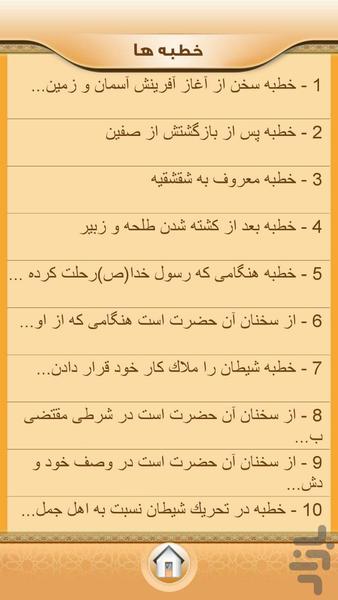 خطبه ها
1 - خطبه سخن از آغاز آفرینش آسمان و زمین...
2 - خطبه پس از بازگشتش از صفین
3 - خطبه معروف به شقشقیه
4 - خطبه بعد از کشته شدن طلحه و زبیر
5 - خطبه هنگامی که رسول خدا(ص)رحلت کرده ...
6 - از سخنان آن حضرت است هنگامی که از او...
7 - خطبه شیطان را ملاك کار خود قرار دادن...
8 - از سخنان آن حضرت است در شرطی مقتضی
ب...
9 - از سخنان آن حضرت است در وصف خود و
دش...
10 - خطبه در تحريك شیطان نسبت به اهل جمل...
بازار